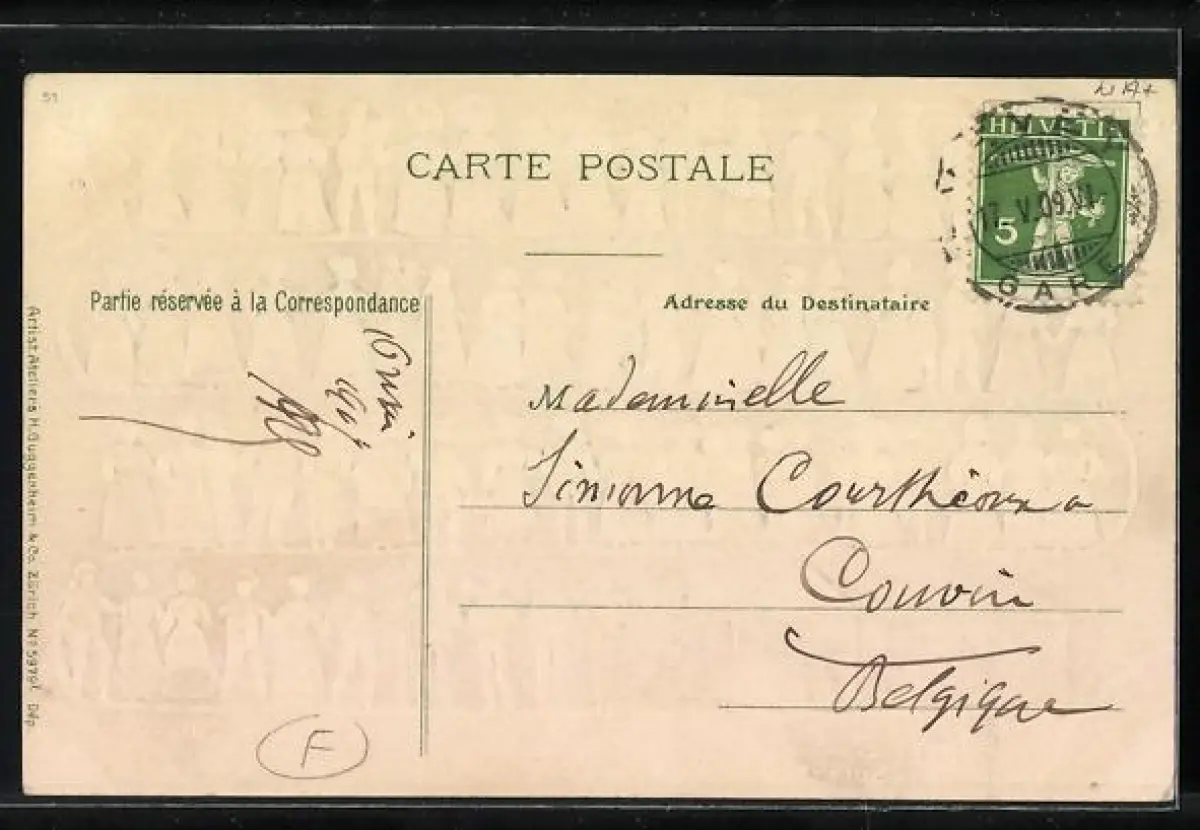 51
CARTE POSTALE
HELVETIA
17.V.09.VI
5
GARE
Partie réservée à la Correspondance
Adresse du Destinataire
10 mai
Mademoiselle
Simonne Courthéoux a
Couvin
Belgique
Artist. Ateliers H. Guggenheim & Co. Zürich No 5979f. Dép.
F